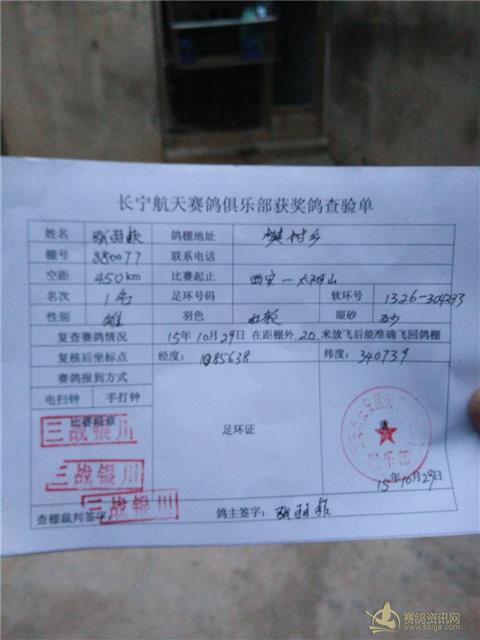 长宁航天赛鸽俱乐部获奖鸽查验单
姓名 鸽棚地址 樊村乡
棚号 880077 联系电话
空距 450km 比赛起止 西安—太阳山
名次 1名 足环号码 软环号 1326-304293
性别 雄 羽色 眼砂 砂
复查赛鸽情况 15年10月29日在距棚外20米放飞后能准确飞回鸽棚
复核后坐标点 经度: 1085638 纬度: 340739
赛鸽报到方式
电扫钟 手打钟
比赛
三战银川
三战银川
三战银川
足环证
乐部
15年10月29日
查棚裁判签字: 鸽主签字:
赛鸽资讯网
www.saige.com